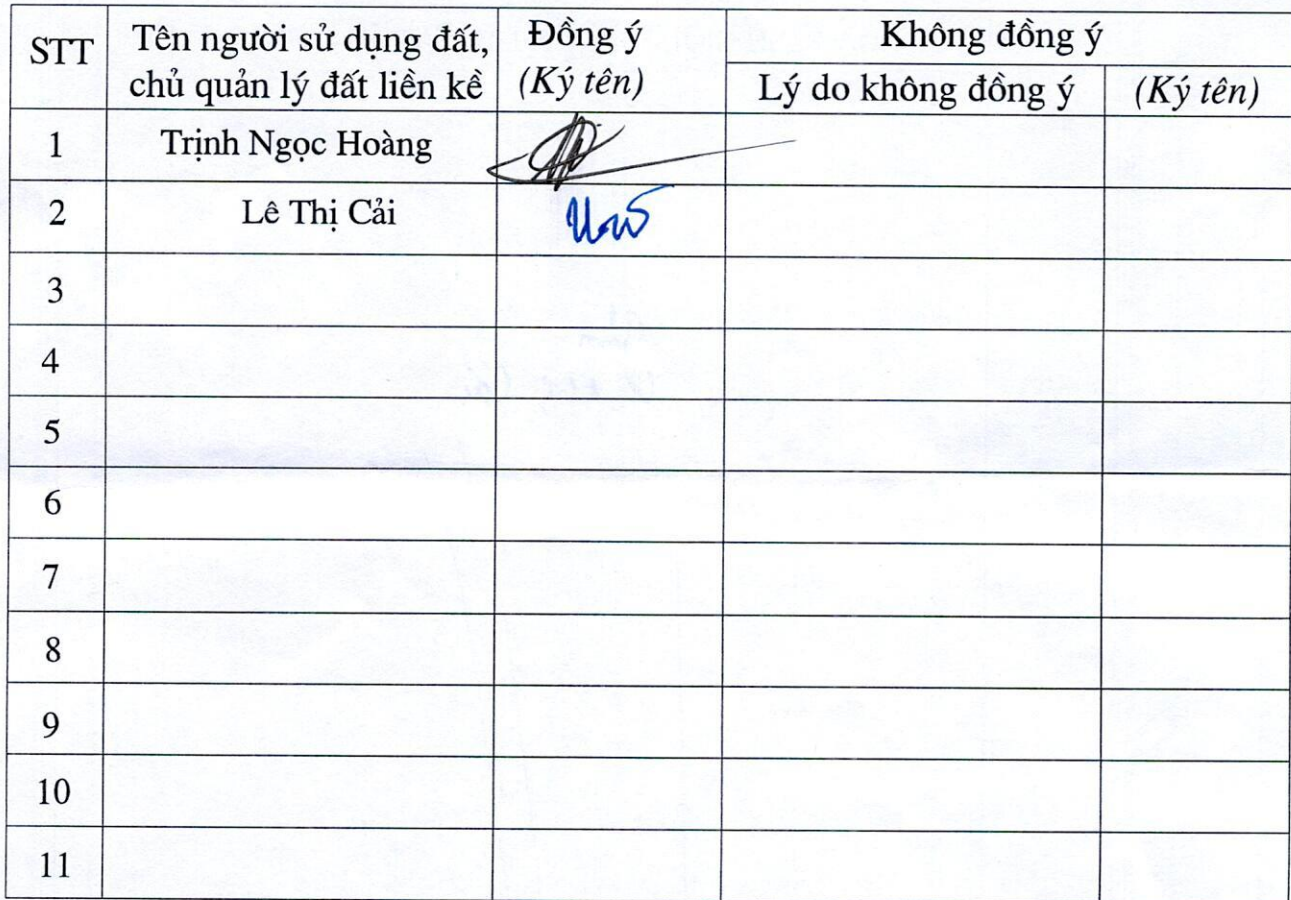 STT
Tên người sử dụng đất,
chủ quản lý đất liền kề
Đồng ý
(Ký tên)
Không đồng ý
Lý do không đồng ý
(Ký tên)
1
Trịnh Ngọc Hoàng
2
Lê Thị Cải
3
4
5
6
7
8
9
10
11